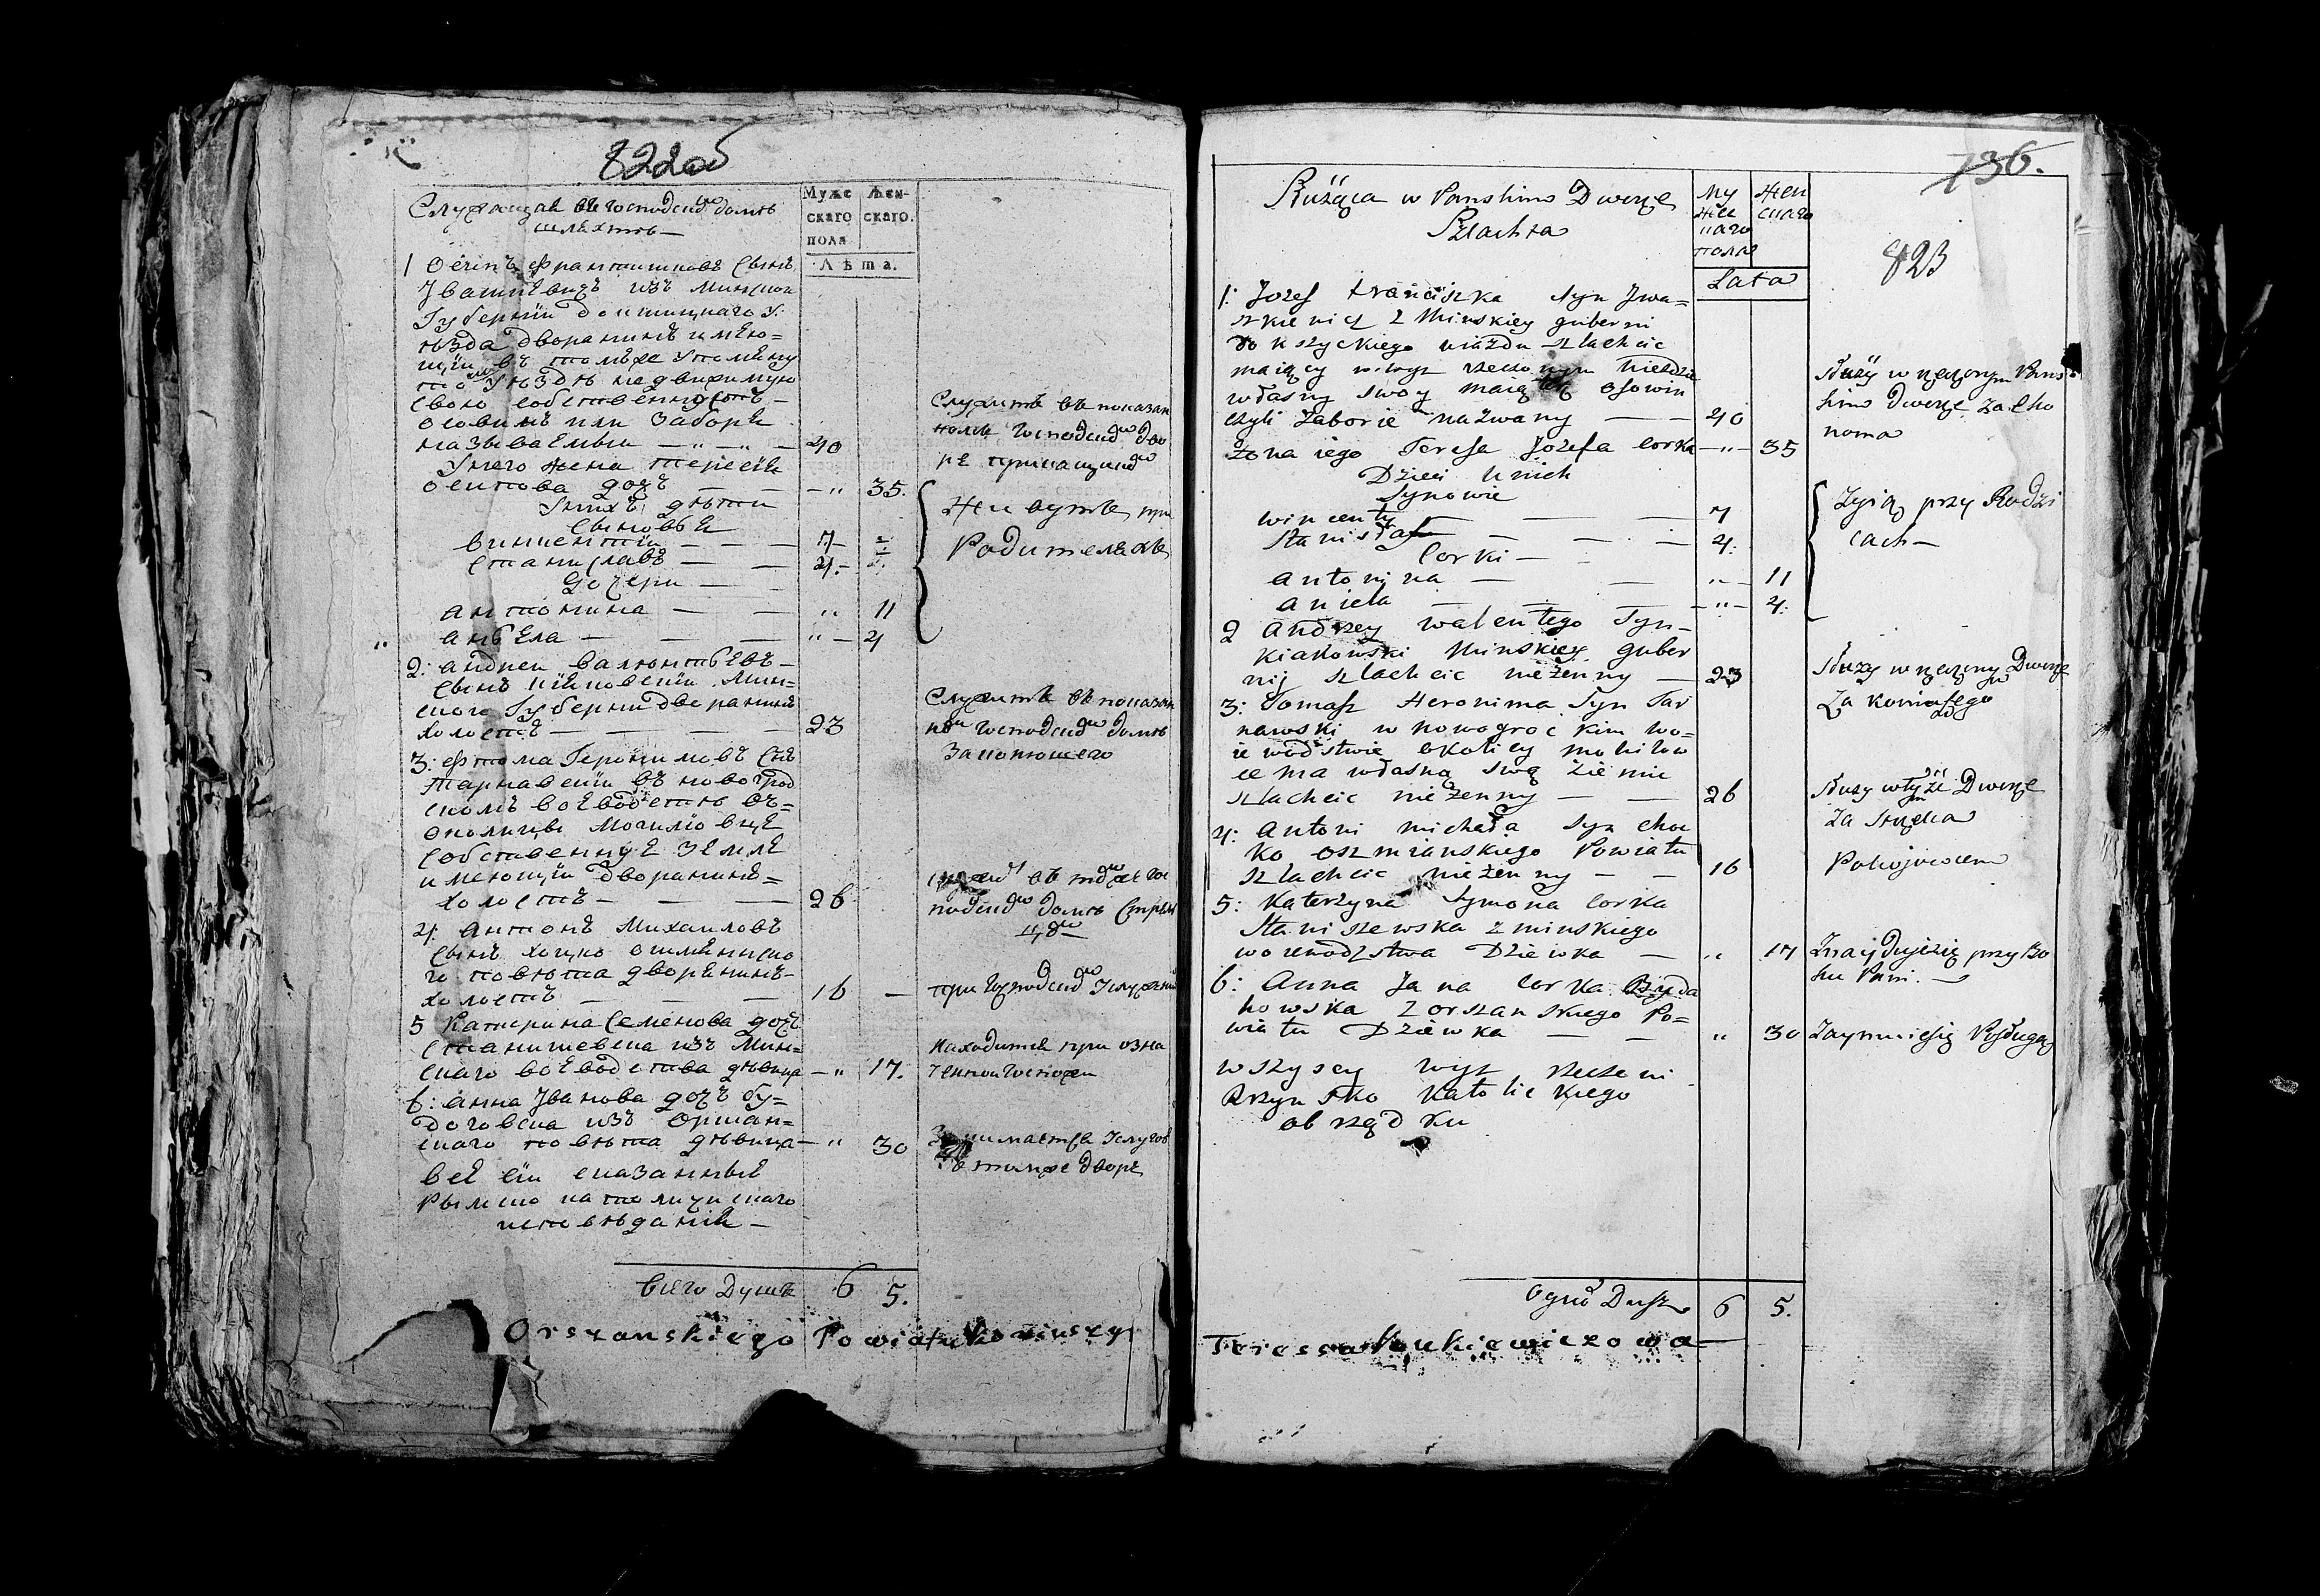 822об
Служащая въ господскомъ домѣ
шляхта —
Муже
скаго
полa
Жен-
скаго.
Лѣта.
1 Осипъ Францишковъ Сынъ
Ивашкевичъ изъ Минской
Губерній докшицкаго У:
ѣзда дворанинъ имѣю=
щій въ томъже упомяну
томъ Уѣздѣ недвижимую
свою собственность —
осовинъ или Заборье
называемый — „ — „ — 40
Служитъ въ показан
номъ господском дво
рѣ
Унего жена Терезія
осипова дочь — — — „ 35.
Унихъ дѣти
Сыновья
винцентій — — — 7 —
Станиславъ — — 4. —
Дочери —
антонина — — „ 11
анѣела — — — „ — 4
Живутъ при
Родителяхъ
2: андрей валентѣевъ —
Сынъ кіяковскій Мин=
ской Губерній дворанинъ
холостъ — — — — 23
Служитъ въ показан
ном господском домѣ
За конюшего
3: Фтома Геронимовъ Снъ
тарнавскій въ новогруд
скомъ воеводствѣ въ=
околицѣ могилiовцѣ
собственную Землю
имеющій дворанинъ=
холостъ — — — 26
господском домѣ
4. антонъ Михаиловъ
Сынъ хоцко ошмянска
го повѣта дворянинъ —
холостъ — — — 16 —
при господском услужении
5 Катерина Семенова дочь
Станишевска изъ Мин=
скаго воеводства дѣвица — „ 17.
находится при озна
ченной госпожи
6: анна Ивановa дочь бу=
договска изъ Оршан=
скаго повѣта дѣвица — „ 30
Занимается услугою
в томже дворѣ
всѣ сіи сказанныѣ
Рымско католицкаго
исповѣданія —
всего Душъ 6 5.
Orszanskiego Powiatu
136.
823
Służąca w Panskim Dworze
Szlachta
Му
жес
каго
полa
Жен
скаго
Lata
1: Jozef Franciszka syn Jwa=
szkiewicz z Minskiey guberni
dokszyckiego uiazdu szlachcic
maiący w wyż rzeczonym Uieździe
własny swoy maiątek osowin
czyli Zaborie nazwany — — 40
Służy w rzeczonym Pans
kim Dworze za Eko
noma
żona iego Teresa Jozefa Corka — „ — 35
Dzieci u nich
Synowie
wincenty — — — 7
Stanisław — — — 4:
Corki —
antonina — — „ — 11
aniela — — — — „ — 4:
Zyią przy Rodzi
cach —
2 andrzey walentego Syn —
Kiakowski Minskiey guber
nij szlachcic nieżenny — 23
Służy w rzeczonym Dworze
Za koniuszego
3: Tomasz Heronima Syn Tar
nawski w nowogrodzkim wo=
iewodstwie okolicy mohilow
ce ma własną swą ziemie
szlachcic nieżenny — — 26
Służy w tymże Dworze
Za Strzelca
4: Antoni michała Syn choc
ko oszmianskiego Powiatu
szlachcic nieżenny — — 16
Pokojowcem
5: Katerzyna Symona Corka
Staniszewska z minskiego
woiewodzstwa Dziewka — „ 17
Znayduje się przy Bo
ku Pani. —
6: Anna Jana Corka Buda
howska z orszanskiego Po=
wiatu Dziewka — — „ 30
Zaymuie się Usługą
wszyscy wyż rzeczeni
Rzymsko Katolickiego
obrządku
Oguł Dusz 6 5.
Teressa